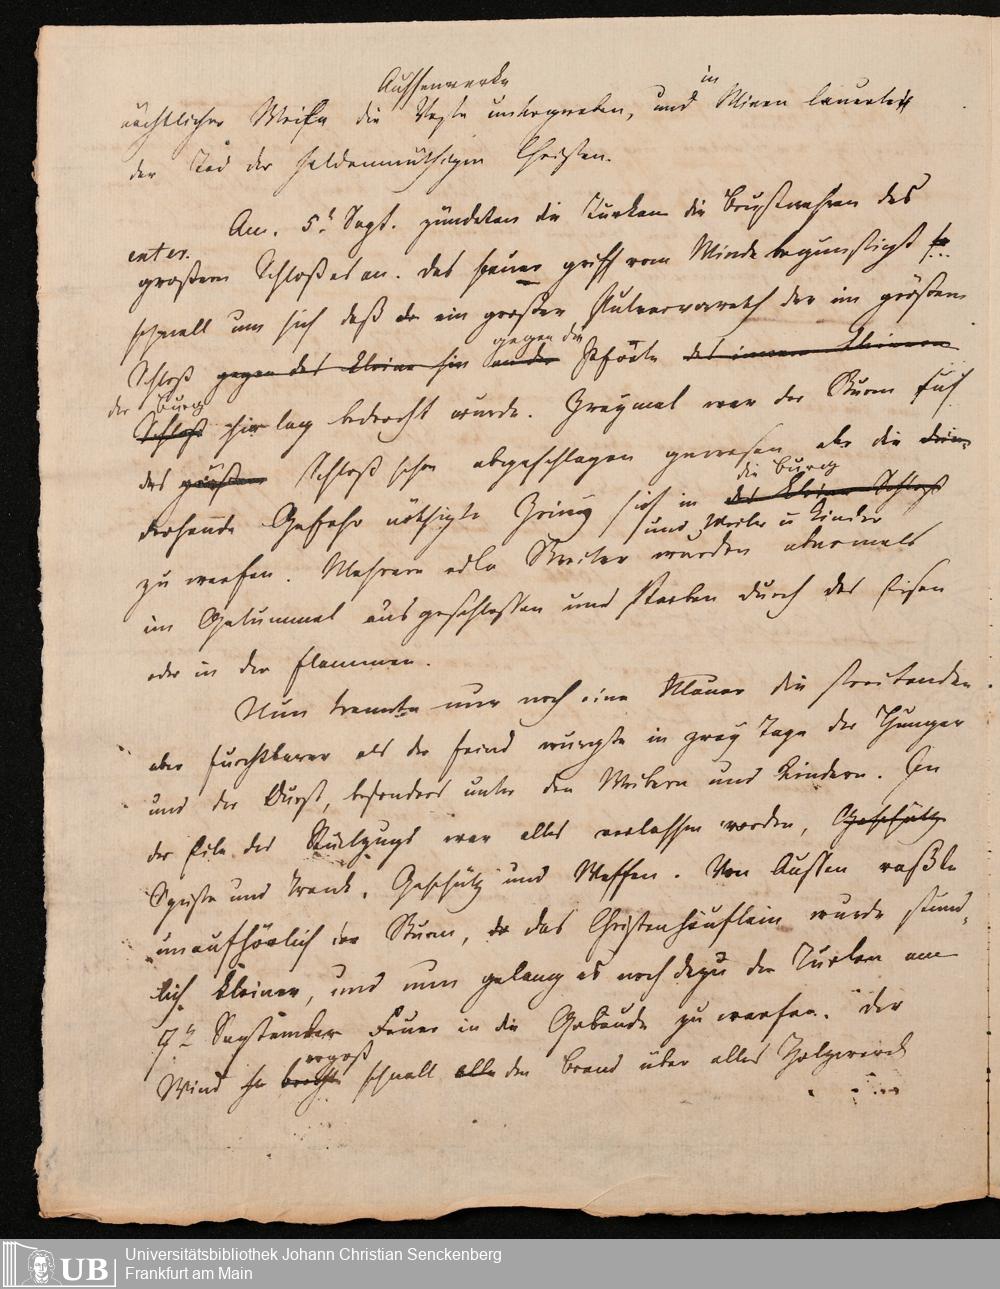 Aussenwerke
nächtlicher Weise die Veste untergraben, und in Minen lauerte
der Tod der heldenmüthigen Christen.
Am 5t Sept. zündeten die Türken die Brustwehren des
großern Schloßes an. Das Feuer griff vom Winde begünstigt so
schnell um sich daß ein großer Pulvervorrath der im größern
Schloß gegen das kleine hin an der gegen die Pforte des innern kleinern
der Burg
Schloß hin lag bedroht wurde. Zweymal war der Sturm auf
das größere Schloß schon abgeschlagen gewesen aber die
drohende Gefahr nöthigte Zriny sich in die Burg das kleine Schloß
zu werfen. Mehrere edle Streiter und Weiber u Kinder wurden abermals
im Getümmel ausgeschlossen und starben durch das Eisen
oder in den Flammen.
Nun trennte nur noch eine Mauer die streitenden
aber furchtbarer als der Feind würgte in zwey Tagen der Hunger
und der Durst, besonders unter den Weibern und Kindern. In
der Eile des Rückzugs war alles verlassen worden, Geschütz
Speise und Trank, Geschütz und Waffen. Von Aussen raßte
unaufhörlich der Sturm, das Christenhäuflein wurde stünd-
lich kleiner, und nun gelang es noch dazu den Türken am
7n September Feuer in die Gebäude zu werfen. Der
Wind brachte ergoß schnell den Brand über alles Holzwerck